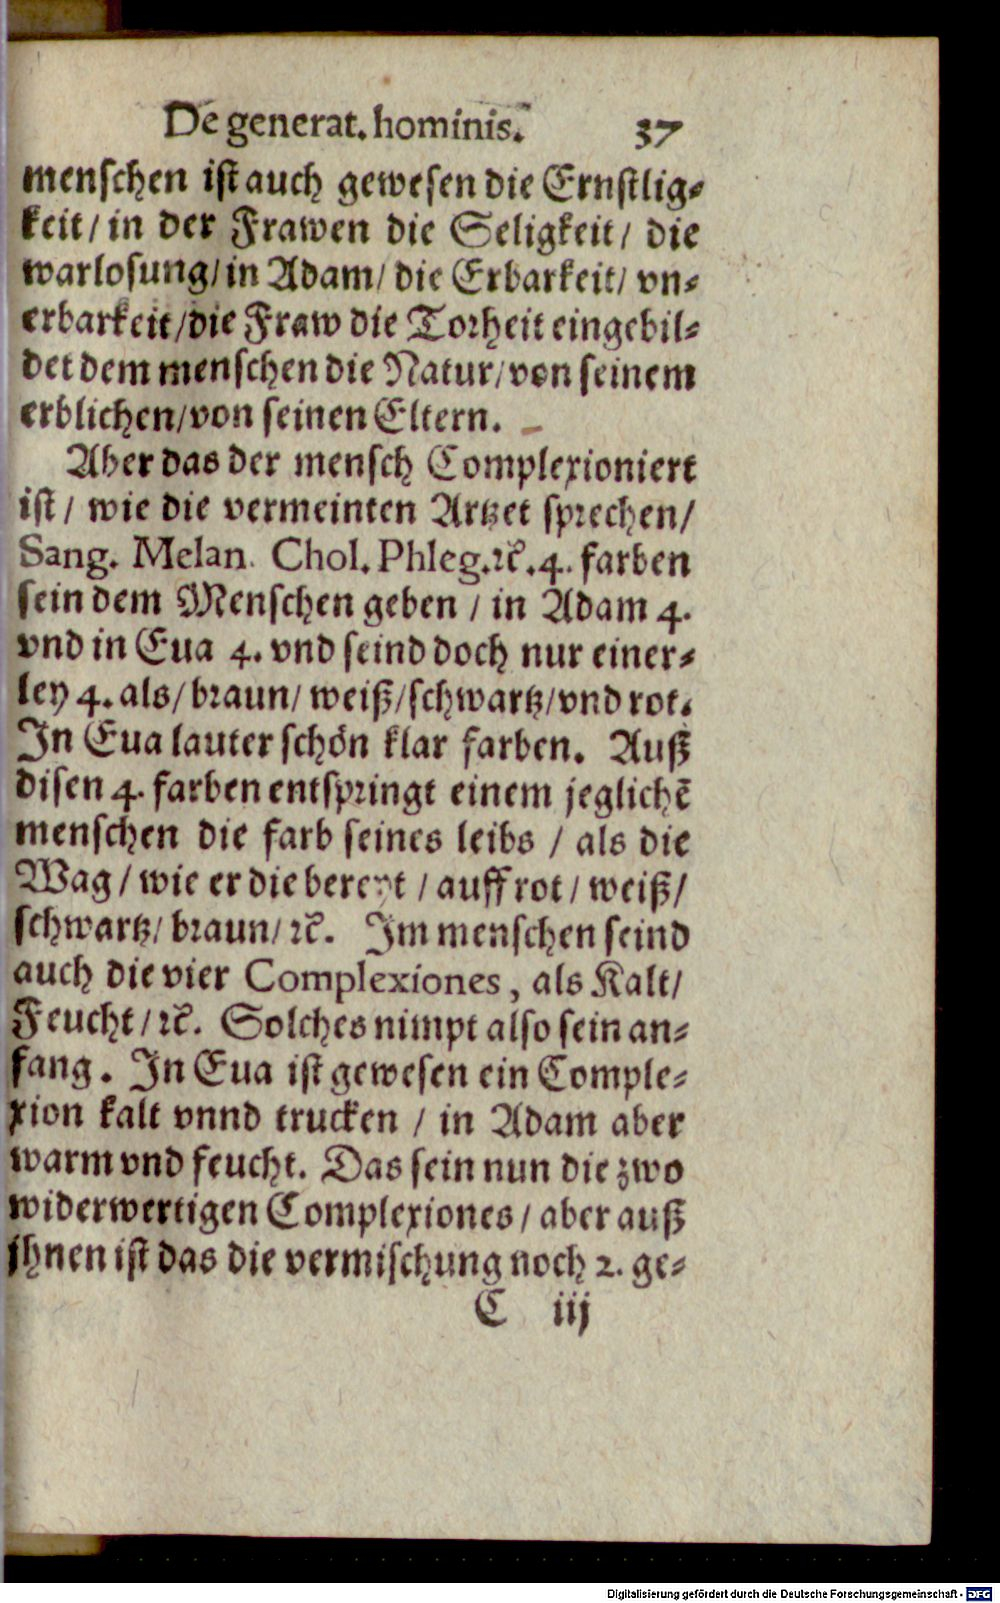 De generat. hominis. 37
menschen ist auch gewesen die Ernstlig-
keit / in der Frawen die Seligkeit / die
warlosung / in Adam / die Erbarkeit / vn-
erbarkeit / die Fraw die Torheit eingebil-
det dem menschen die Natur / von seinem
erblichen / von seinen Eltern.
Aber das der mensch Complexioniert
ist / wie die vermeinten Artzet sprechen /
Sang. Melan. Chol. Phleg. ꝛc̃. 4. farben
sein dem Menschen geben / in Adam 4.
vnd in Eua 4. vnd seind doch nur einer-
ley 4. als / braun / weiß / schwartz / vnd rot.
In Eua lauter schön klar farben. Auß
disen 4. farben entspringt einem jeglichẽ
menschen die farb seines leibs / als die
Wag / wie er die bereyt / auff rot / weiß /
schwartz / braun / ꝛc̃. Im menschen seind
auch die vier Complexiones, als Kalt /
Feucht / ꝛc̃. Solches nimpt also sein an-
fang. In Eua ist gewesen ein Comple-
xion kalt vnnd trucken / in Adam aber
warm vnd feucht. Das sein nun die zwo
widerwertigen Complexiones / aber auß
jhnen ist das die vermischung noch 2. ge-
C iij
Digitalisierung gefördert durch die Deutsche Forschungsgemeinschaft - DFG